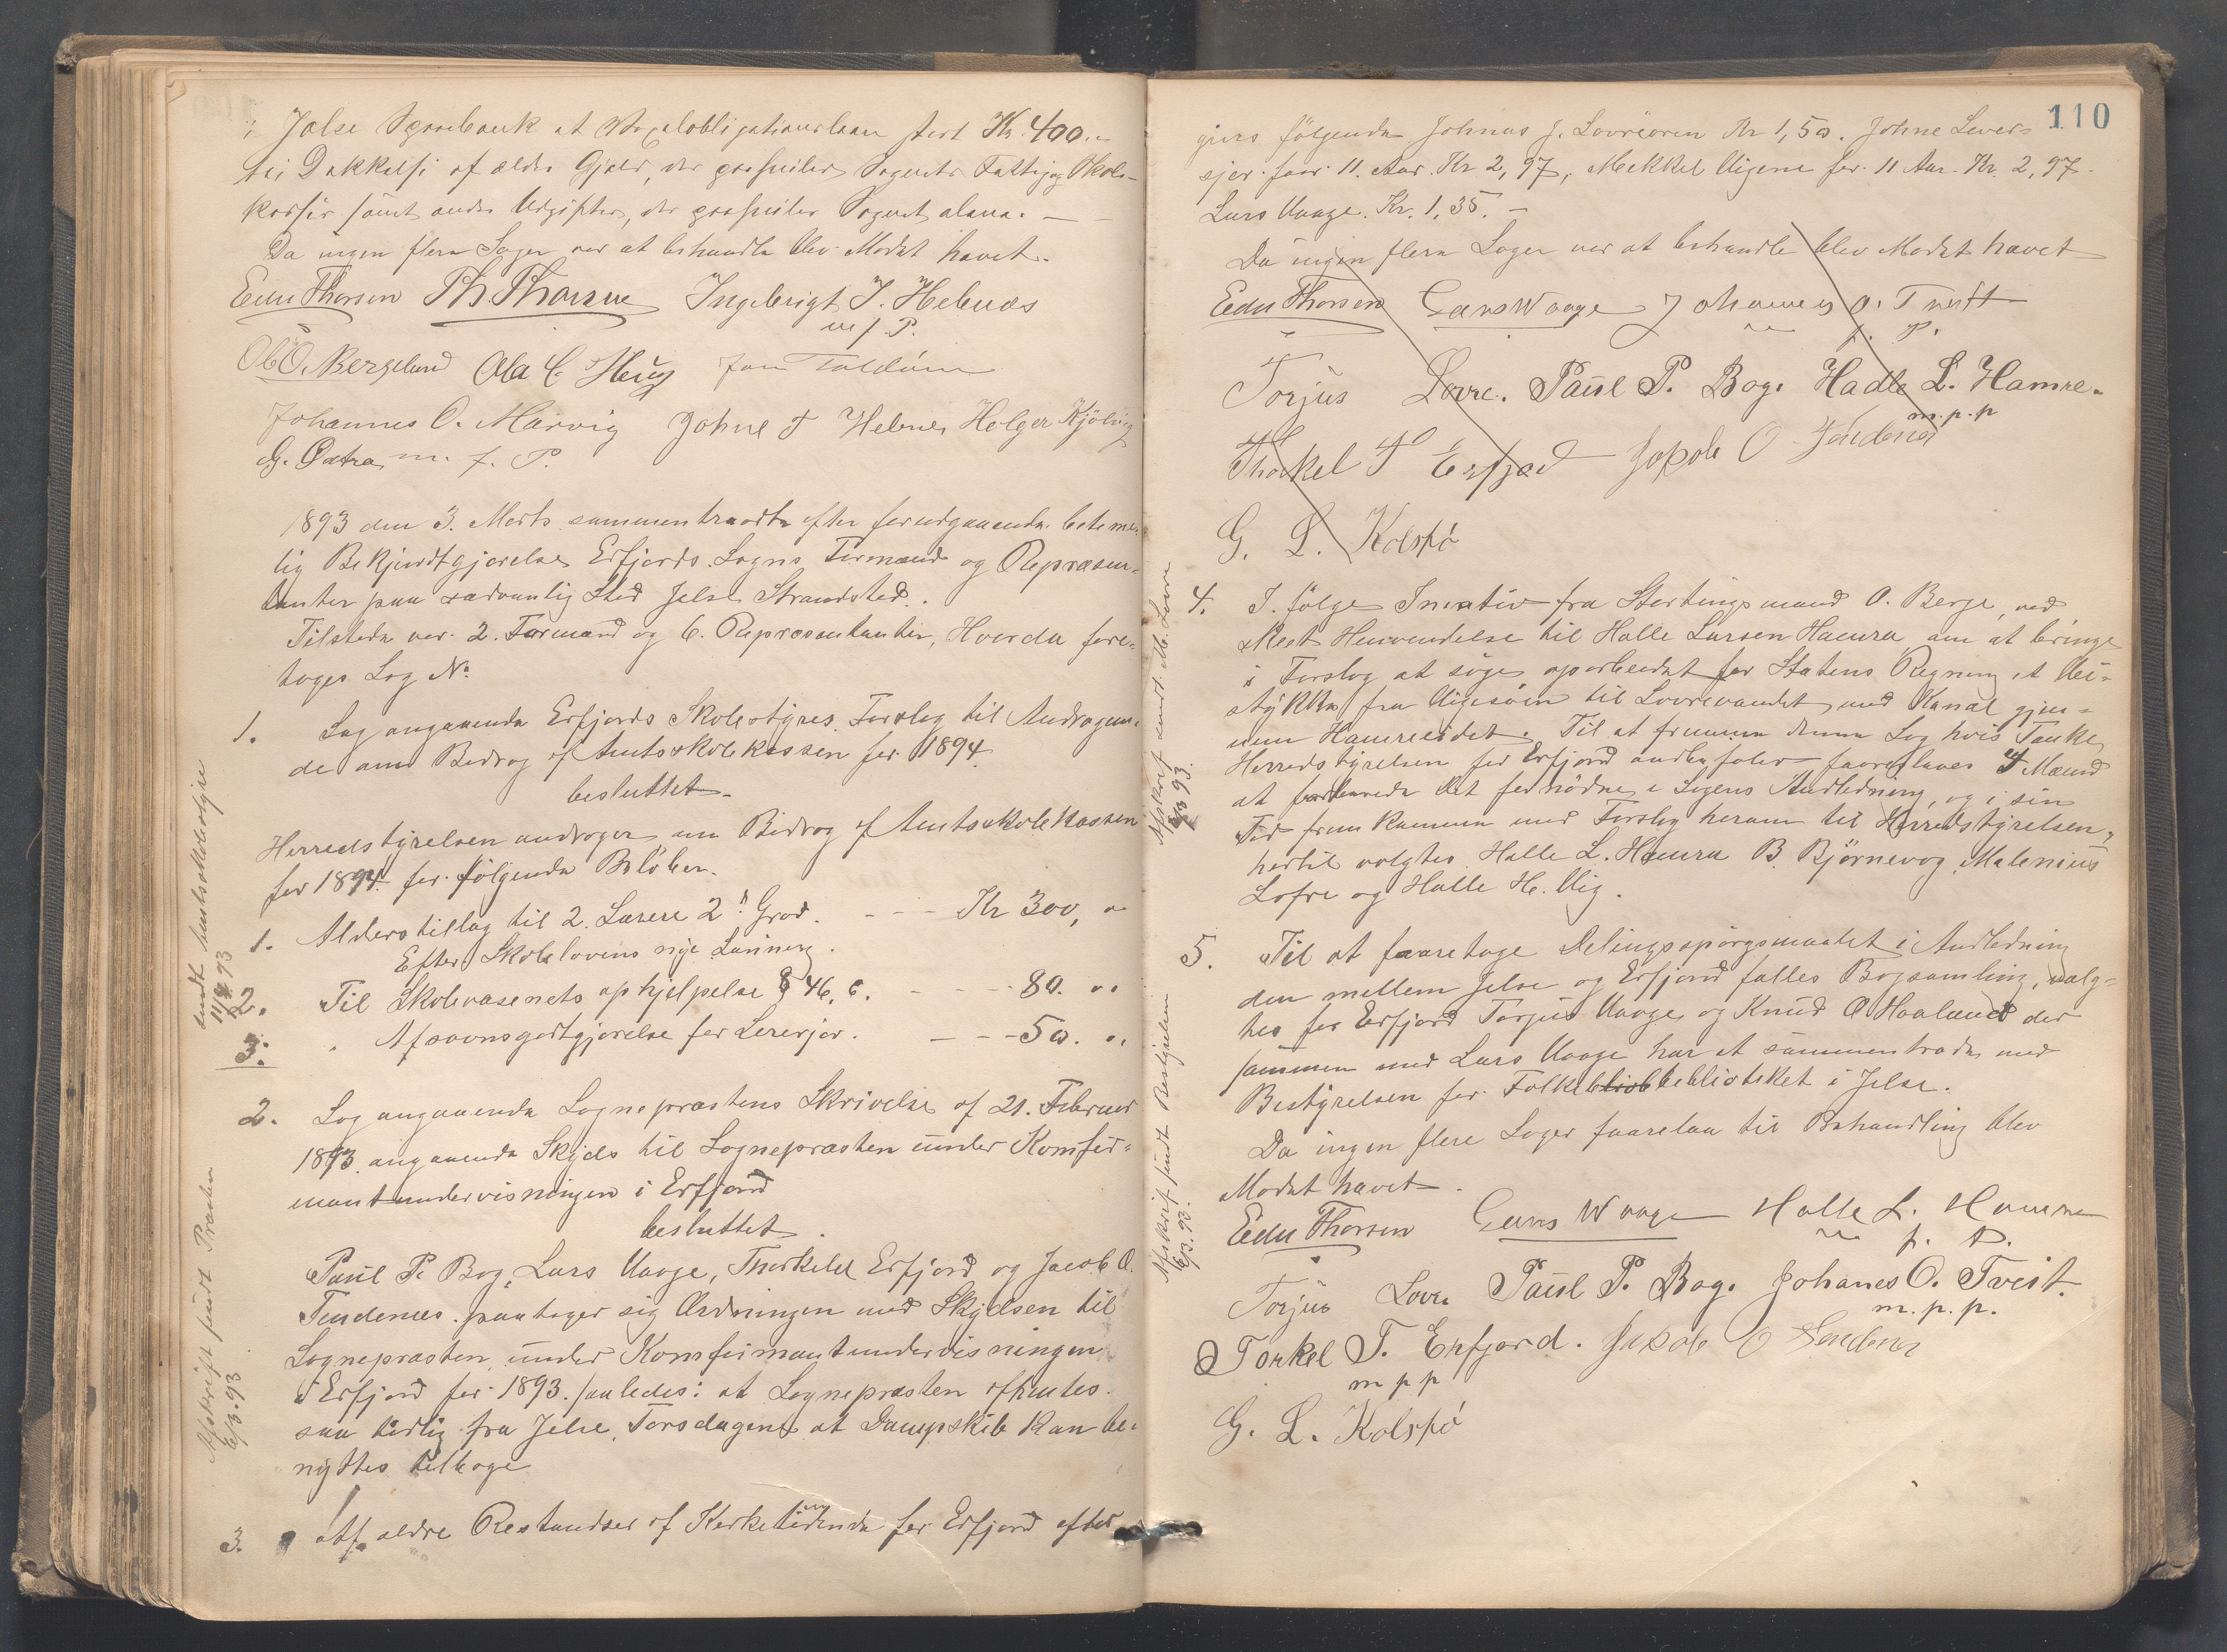 i Jelse Sparebank et Vexelobligationslaan stort Kr. 400.-
til Dækkelse af ældre Gjæld, der paahviler Sognets Fattig og Skole-
kasser samt andre Udgifter, der paahviler Sognet alene. —
Da ingen flere Sager var at behandle blev Mødet hævet.
Edu Thorsen Th. Thorsen Ingebrigt I. Helenæs
m f. P.
Ole O. Bergelund Ola C. Heng
Johannes O. Marvig Johne T Helenes Holger Kjölvig
G. Østra m. f. P.
1893 den 3. Marts sammentraadte efter forudgaaende betime-
lig Bekjendtgjørelse Erfjords Sogns Formænd og Repræsen-
tanter paa sædvanlig Sted Jelse Strandsted.
Tilstede var 2. Formænd og 6. Repræsentanter, Hvorda fore-
toges Sag No
1. Sag angaaende Erfjords Skolestyres Forslag til Andragen-
de om Bidrag af Amtsskolekassen for 1894
besluttet.
Herredstyrelsen andrager om Bidrag af Amtsskolekassen
for 1894 for følgende Beløber.
1. Alderstillæg til 2 Lærere 2den Grad. - - - Kr 300, "
Efter Skolelovens nye Lønning.
2. Til Skolevæsenets ophjelpelse § 46, c. - - - 80. "
3. " Afsavnsgodtgjørelse for Lererjor. - - - 50. "
sendt Amtsskolestyre
11/4 93
2. Sag angaaende Sogneprestens Skrivelse af 21. Februar
1893 angaaende Skyds til Sognepræsten under Komfir-
mantundervisningen i Erfjord
besluttet.
Paul P. Bog, Lars Vaage, Thorkild Erfjord og Jacob O.
Tendenes paatager sig Ordningen med Skydsen til
Sognepræsten under Komfirmantundervisningen
i Erfjord for 1893. saaledes: at Sognepræsten afhentes
saa tidlig fra Jelse, Torsdagene at Dampskib kan be-
nyttes tilbage
Afskrift sendt Præsten
6/3 93
3. Af ældre Restandser af Kirketiende for Erfjord efter
110
gives følgende Johnas J. Lovreøren Kr 1,50. Johne Lever-
sjer for 11. Aar. Kr 2,97, Mekkel Vigene for 11 Aar. Kr. 2,97.
Lars Vaage. Kr. 1,35. -
Da ingen flere Sager var at behandle blev Mødet hævet
Edu Thorsen Lars Waage Johannes O. Tveit
m. f. P.
Torjus Lovre. Paul P. Bog. Hadle L. Hamre.
m. p. p
Thorkel T Erfjord Jakob O Tendenes
G. L. Kolspó
4. I. følge Iniativ fra Stortingsmand O. Berge, ved
skeet Henvendelse til Halle Larsen Hamra, om at bringe
i Forslag at søge oparbeidet for Statens Regning et Vei-
stykke fra Vigesøen til Lovrevandet med Kanal gjen-
nem Hamreeidet. Til at fremme denne Sag hvis Tanke
Herredstyrelsen for Erfjord anbefaler foreslaaes 4 Mænd
at forberede det fornødne i Sagens Andledning, og i sin
Tid fremkomme med Forslag herom til Herredstyrelsen,
hertil valgtes Halle L. Hamra B. Björnevog, Malenius
Lofre og Halle H. Vig.
Afskrift sendt M. Lovre
6/3 93.
5. Til at foretage Delingsspørgsmaalet i Andledning
den mellem Jelse og Erfjord fælles Bogsamling, valg-
tes for Erfjord Torjus Vaage og Knud O Haaland der
sammen med Lars Vaage har at sammentræde med
Bestyrelsen for Folkebibliotheket i Jelse.
Da ingen flere Sager forelaa til Behandling blev
Mødet hævet.
Afskrift sendt Bestyrelsen
6/3 93.
Edu Thorsen Lars Waage Halle L. Hamre
m. p. P.
Torjus Lovre Paul P. Bog. Johanes O. Tveit.
m. p. p.
Torkel T. Erfjord. Jakob O Tendenes
m p p
G. L. Kolspó